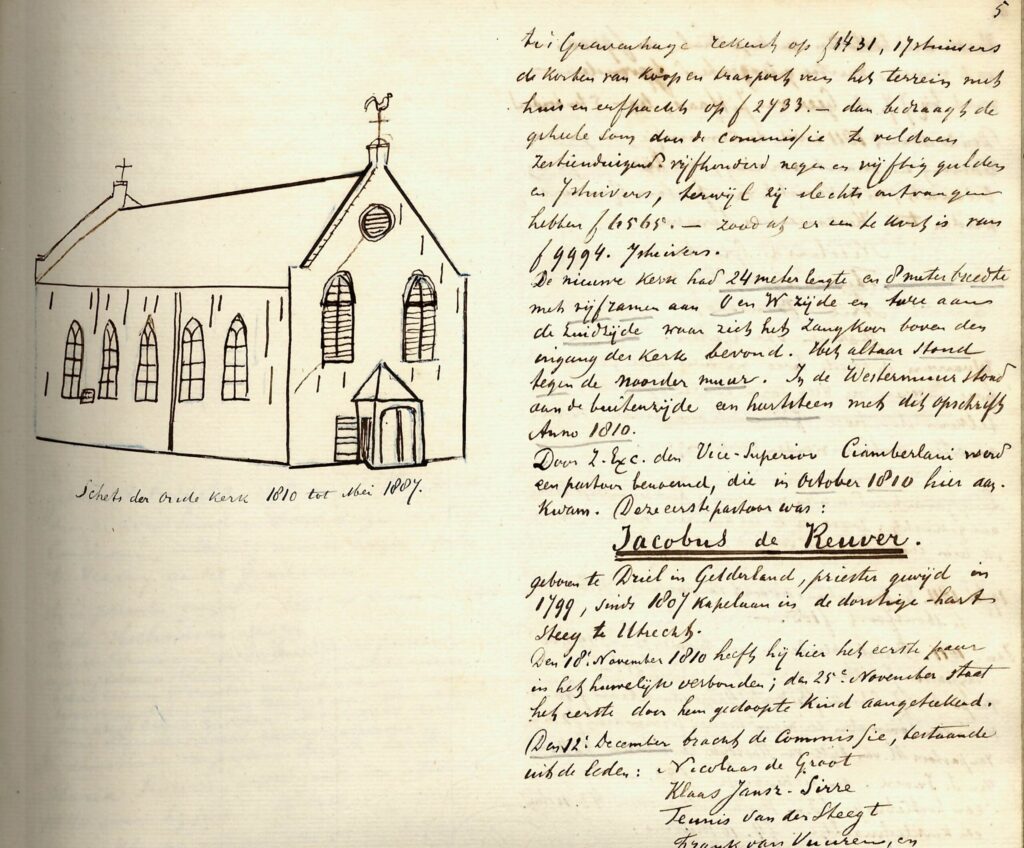 Schets der oude Kerk 1810 tot Mei 1887.
5
te 's Gravenhage rekent op f 1431, 17 stuivers
de Kosten van Koop en transport van het terrein met
huis en erfpacht op f 2733.— dan bedraagt de
geheele som door de commissie te voldoen
zestienduizend vijfhonderd negen en vijftig gulden
en 7 stuivers, terwijl zij slechts ontvangen
hebben f 6565.— zoodat er een te Kort is van
f 9994. 7 stuivers.
De nieuwe Kerk had 24 meter lengte en 8 meter breedte
met vijf ramen aan O en W zijde en twee aan
de Zuidzijde waar zich het Zangkoor boven den
ingang der Kerk bevond. Het altaar stond
tegen de noorder muur. In de Westermuur stond
aan de buitenzijde een hartsteen met dit opschrift
Anno 1810.
Door Z. Exc. den Vice-Superior Ciamberlani werd
een pastoor benoemd, die in October 1810 hier aan
Kwam. Deze eerste pastoor was:
Jacobus de Reuver.
geboren te Driel in Gelderland, priester gewijd in
1799, sinds 1807 Kapelaan in de
Steeg te Utrecht.
Den 18e November 1810 heeft hij hier het eerste paar
in het huwelijk verbonden; den 25e November staat
het eerste door hem gedoopte Kind aangetekend.
Den 12e December bracht de Commissie, bestaande
uit de leden: Nicolaas de Groot
Klaas Jansz. Sirre
Teunis van der Steegt
Frank van Vuuren, en